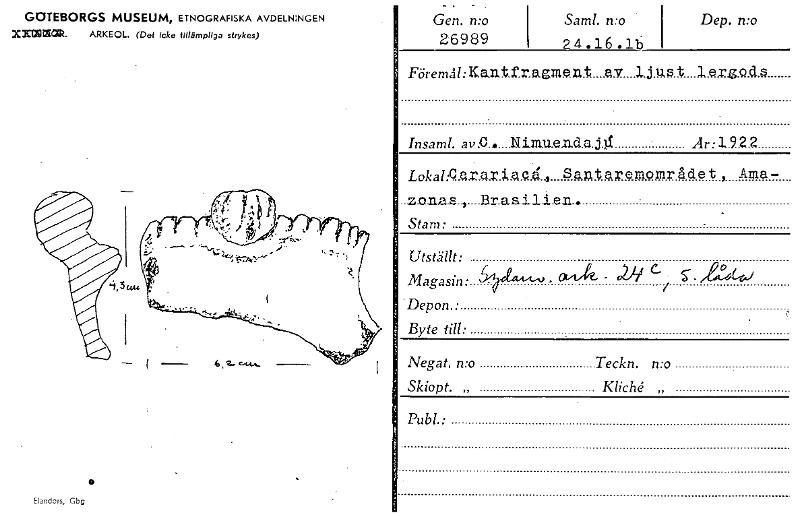 GÖTEBORGS MUSEUM, ETNOGRAFISKA AVDELNINGEN
ARKEOL. (Det icke tillämpliga strykes)
4,3 cm
6,2 cm
Elanders, Gbg
Gen. n:o Saml. n:o Dep. n:o
26989 24.16.1b
Föremål: Kantfragment av ljust lergods
Insaml. av: C. Nimuendajú År: 1922
Lokal: Carariacá, Santaremområdet, Ama-
zonas, Brasilien.
Stam:
Utställt:
Magasin: Sydam. ark. 24 C, 5. låda
Depon.:
Byte till:
Negat. n:o Teckn. n:o
Skiopt. „ Kliché „
Publ.: